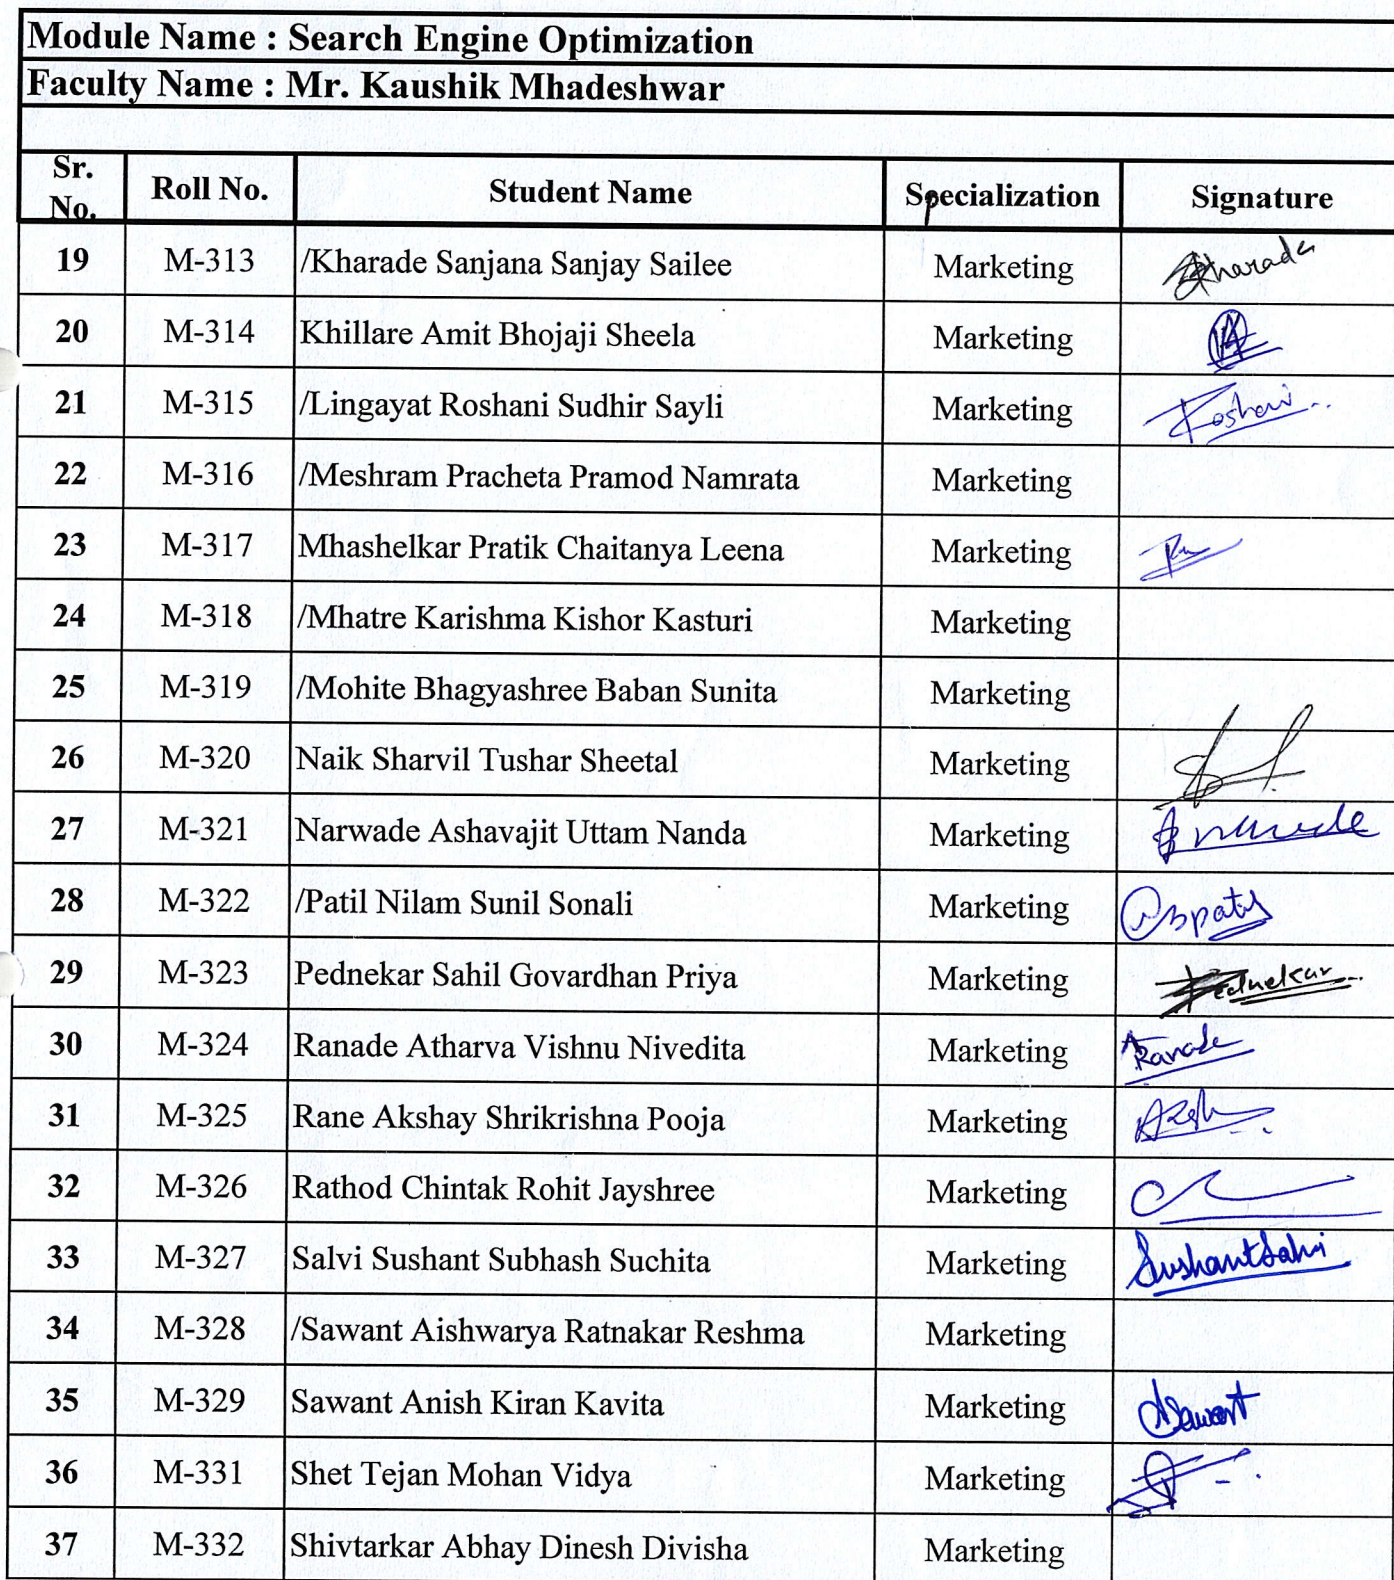 Module Name : Search Engine Optimization
Faculty Name : Mr. Kaushik Mhadeshwar
Sr. No. Roll No. Student Name Specialization Signature
19 M-313 /Kharade Sanjana Sanjay Sailee Marketing Kharade
20 M-314 Khillare Amit Bhojaji Sheela Marketing
21 M-315 /Lingayat Roshani Sudhir Sayli Marketing Roshani
22 M-316 /Meshram Pracheta Pramod Namrata Marketing
23 M-317 Mhashelkar Pratik Chaitanya Leena Marketing
24 M-318 /Mhatre Karishma Kishor Kasturi Marketing
25 M-319 /Mohite Bhagyashree Baban Sunita Marketing
26 M-320 Naik Sharvil Tushar Sheetal Marketing
27 M-321 Narwade Ashavajit Uttam Nanda Marketing
28 M-322 /Patil Nilam Sunil Sonali Marketing
29 M-323 Pednekar Sahil Govardhan Priya Marketing Pednekar
30 M-324 Ranade Atharva Vishnu Nivedita Marketing ARanade
31 M-325 Rane Akshay Shrikrishna Pooja Marketing
32 M-326 Rathod Chintak Rohit Jayshree Marketing
33 M-327 Salvi Sushant Subhash Suchita Marketing Sushant Salvi
34 M-328 /Sawant Aishwarya Ratnakar Reshma Marketing
35 M-329 Sawant Anish Kiran Kavita Marketing ASawant
36 M-331 Shet Tejan Mohan Vidya Marketing
37 M-332 Shivtarkar Abhay Dinesh Divisha Marketing